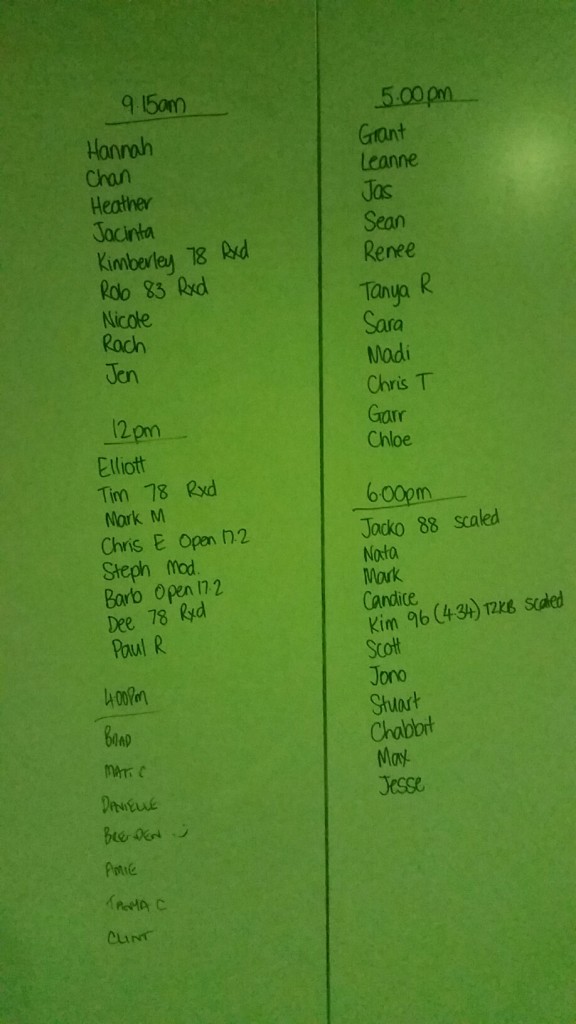 9.15am
Hannah
Chan
Heather
Jacinta
Kimberley 78 Rxd
Rob 83 Rxd
Nicole
Rach
Jen
12pm
Elliott
Tim 78 Rxd
Mark M
Chris E Open 17.2
Steph Mod.
Barb Open 17.2
Dee 78 Rxd
Paul R
4:00Pm
BRAD
MAT. C
DANIELLE
BRENDEN
AMIE
TANYA C
CLINT
5.00pm
Grant
Leanne
Jas
Sean
Renee
Tanya R
Sara
Madi
Chris T
Garr
Chloe
6.00pm
Jacko 88 scaled
Nata
Mark
Candice
Kim 96 (4.34) 12KB scaled
Scott
Jono
Stuart
Chabbit
Max
Jesse